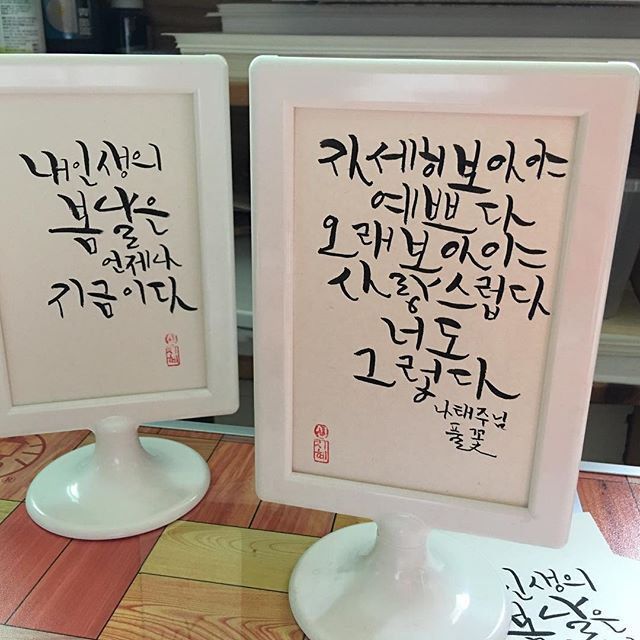 내인생의
봄날은
언제나
지금이다
자세히보아야
예쁘다
오래보아야
사랑스럽다
너도
그렇다
나태주님
풀꽃
인생의
봄날은